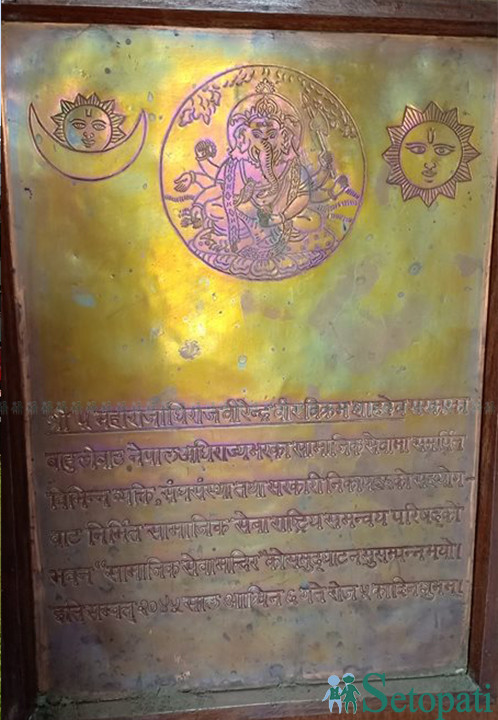 श्री ५ महाराजाधिराज वीरेन्द्र वीर विक्रम शाहदेव सरकारका
बाहुलीबाट नेपाल अधिराज्यभरका सामाजिक सेवामा समर्पित
विभिन्न व्यक्ति, संघसंस्था तथा सरकारी निकायहरूको सहयोग-
बाट निर्मित सामाजिक सेवा राष्ट्रिय समन्वय परिषद्को
भवन "सामाजिक सेवा मन्दिर" को समुद्घाटन सुसम्पन्न भयो।
इति सम्वत् २०४५ साल आश्विन ६ गते रोज ५ का दिन शुभम्।
Setopati